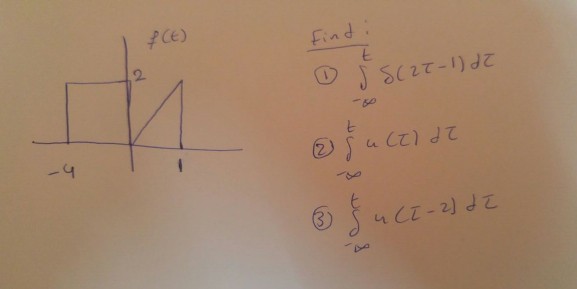 f(t)
2
-4
1
Find:
① ∫_{-∞}^{t} δ(2τ-1) dτ
② ∫_{-∞}^{t} u(τ) dτ
③ ∫_{-∞}^{t} u(τ-2) dτ